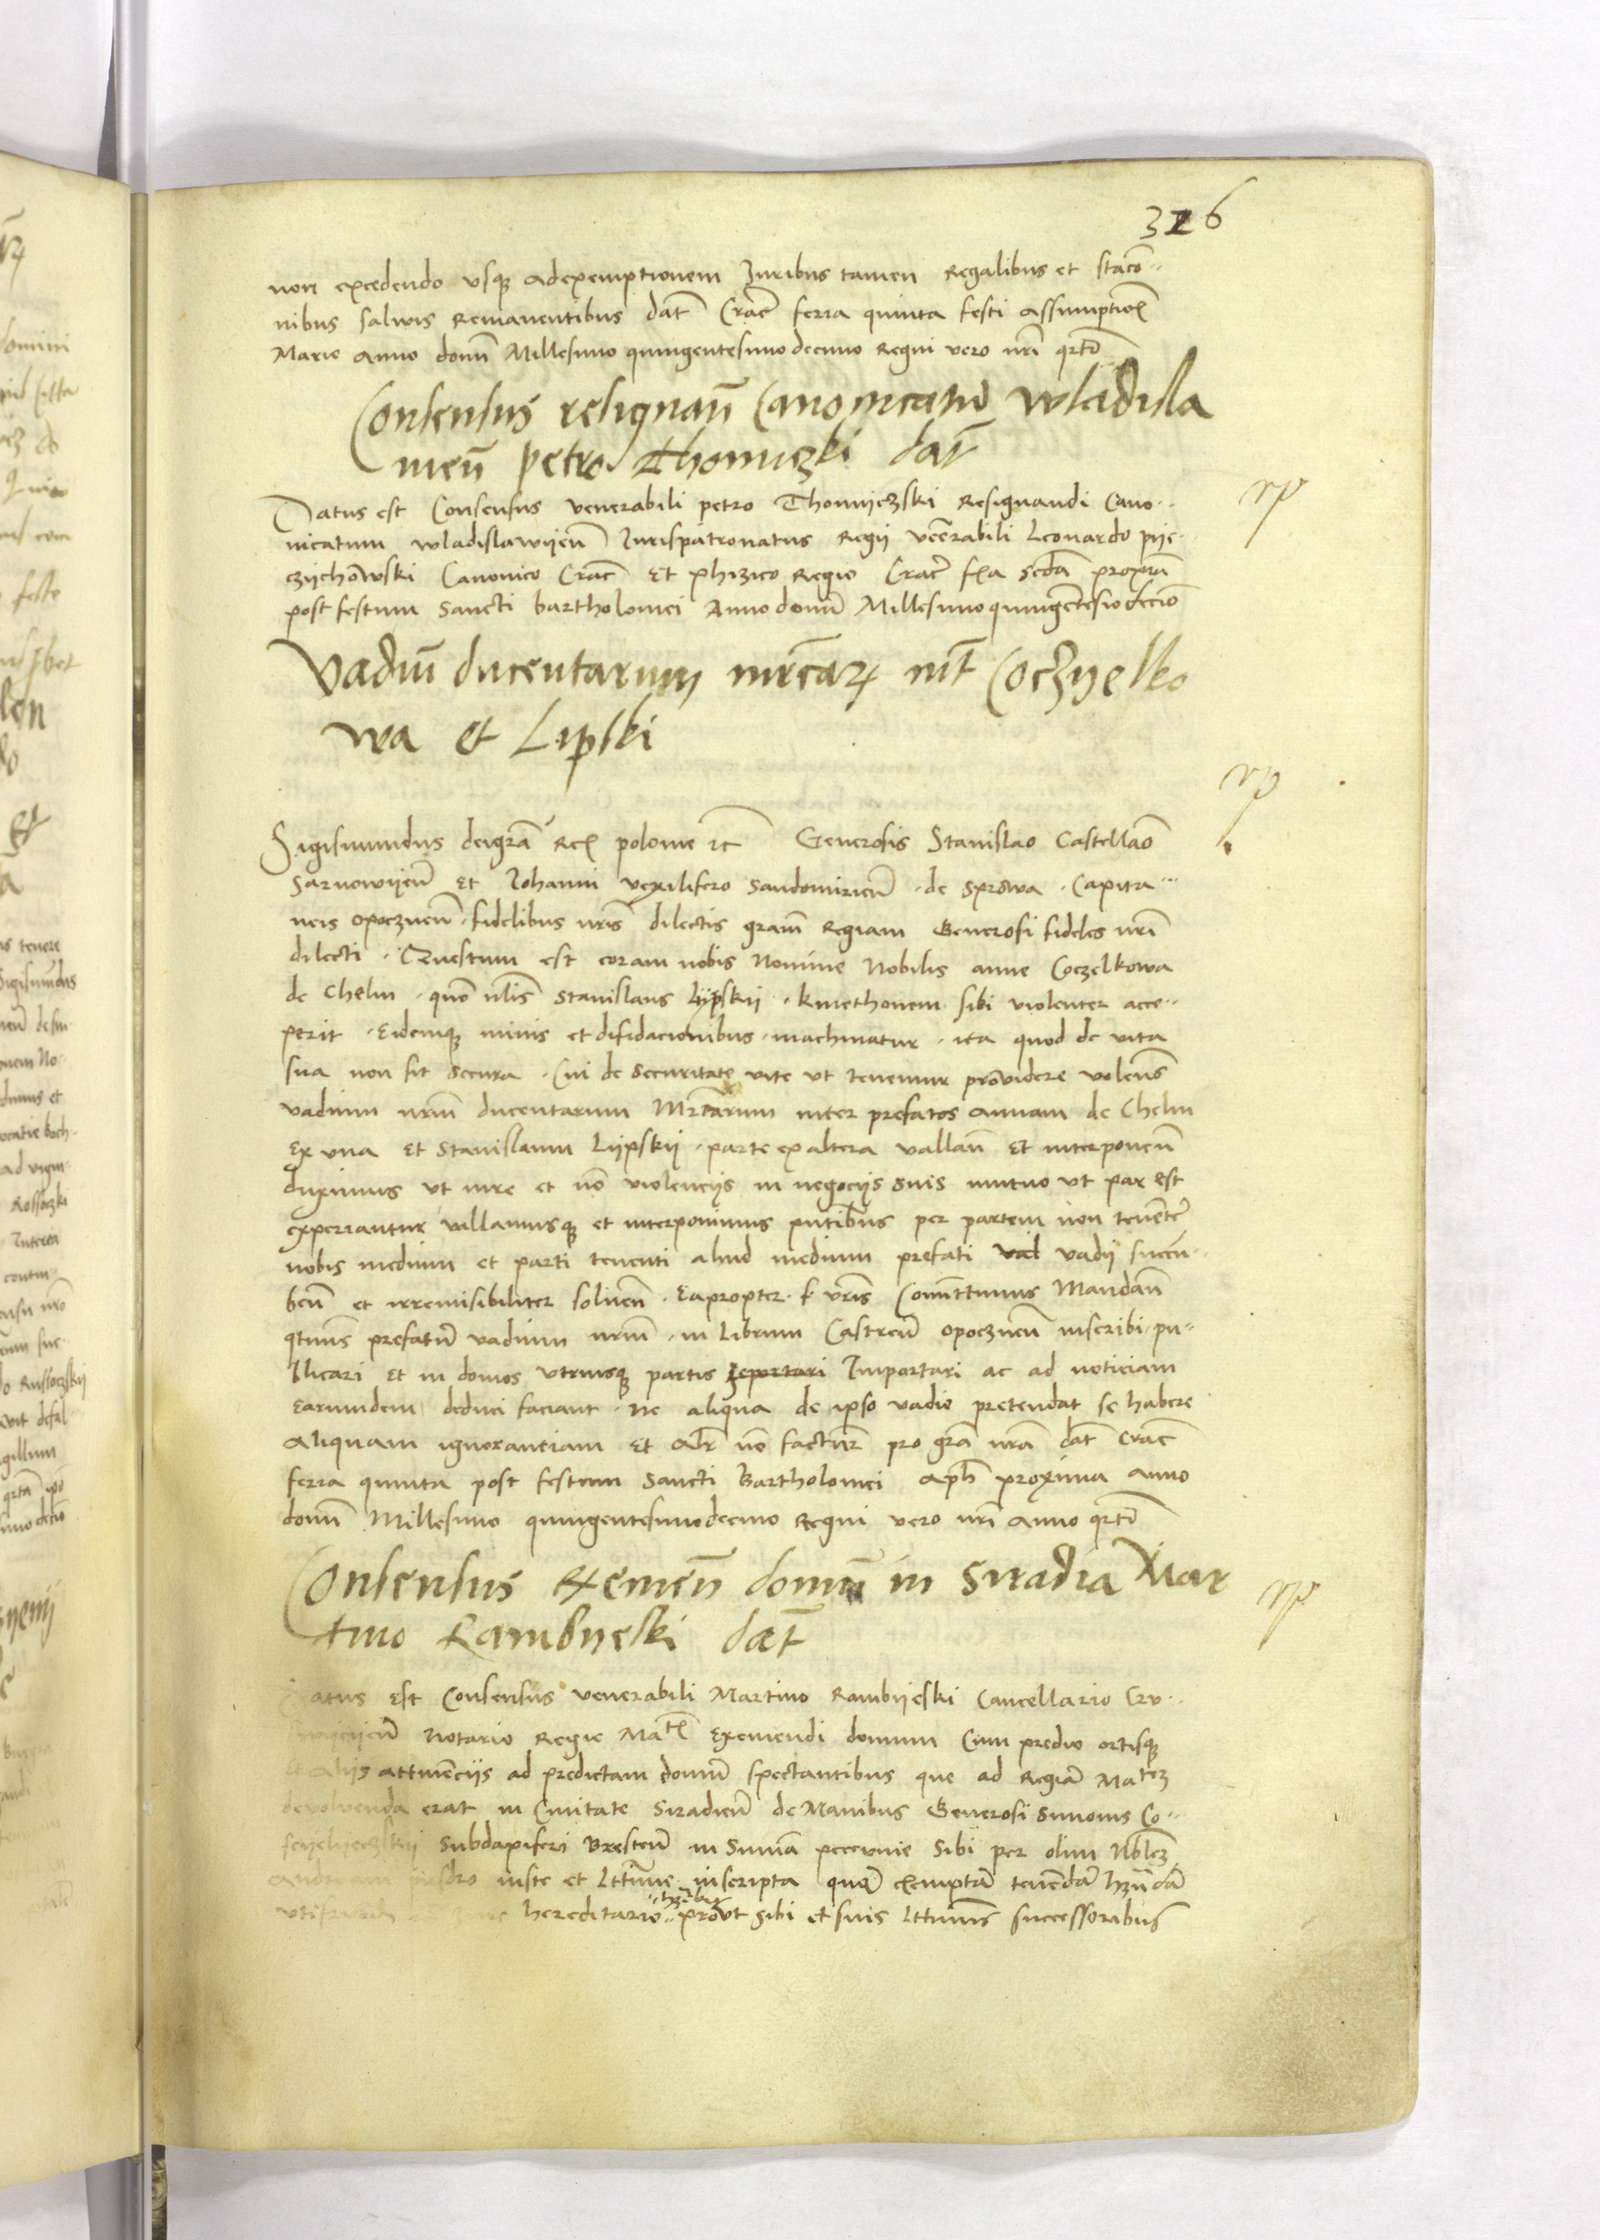 326
non excedendo usq adexemptionem Juribus tamen Regalibus et staco
nibus salvis remanentibus dat Crac feria quinta festi assumption
Marie anno domi Millesimo quingentesimodecimo Regni vero nri qrto
Consensus resignan Canonicatu wladisla
vien petro Thomiczki dat
Datus est Consensus venerabili petro Thomijczski Resignandi Cano
nicatum wladislawijen Jurispatronatus Regij venerabili Leonardo pije
czijchowski Canonico Crac Et phizico Regio Crac fia secda proxima
post festum sancti bartholomei Anno domi Millesimo quingentesiodecio
Vadiu ducentarum mrcar int Coczijelko
wa et Lipski
Sigismundus deigra Rex polonie etc Generosis Stanislao Castellao
sarnowijen et Johanni vexilifero sandomirien de sprowa Capita
neis opocznen fidelibus nris dilectis gram Regiam Generosi fideles nri
dilecti Questum est coram nobis Nomine Nobilis anne Coczelkowa
de Chelm quo nlis Stanislaus Lijpskij kmethonem sibi violenter acce
perit Eidemq minis et difidacionibus machinatur ita quod de vita
sua non sit secura Cui de securitate vite ut tenemur providere volens
vadium nrm ducentarum Mrcarum inter prefatos annam de Chelm
Ex una et Stanislaum Lijpskij parte ex altera vallan et interponen
duximus ut iure et no violencijs in negocijs suis mutuo ut par est
experiantur vallamusq et interponimus pntibus per partem non tenente
nobis medium et parti tenenti aliud medium prefati vad vadij succu
ben et irremisibiliter solven Eapropter f vris Comittimus Mandan
qtnus prefatu vadium nrm in Librum Castren opocznen inscribi pu
blicari et in domos utriusq partis reportari Importari ac ad noticiam
earumdem deduci faciant Ne aliqua de ipso vadio pretendat se habere
aliquam ignoranciam et alr no factur pro gra nra dat Crac
feria quinta post festum sancti Bartholomei aph proxima anno
domi Millesimo quingentesimodecimo Regni vero nri anno qrto
Consensus Exemen domu in Siradia Mar
tino Rambijeski dat
Datus est Consensus venerabili Martino Rambijeski Cancellario
Notario Regie Mat Exemendi domum Cum predio ortisq
et alijs attinencijs ad predictam domu spectantibus que ad Regia Matez
devolvenda erat in Civitate Siradien de Manibus Generosi Simonis Co
Subdapiferi Bresten in Suma peccunie Sibi per olim
iuste et Lttime inscripta qua exempta tenenda hznda
hereditario prout sibi et suis Lttimis successoribus